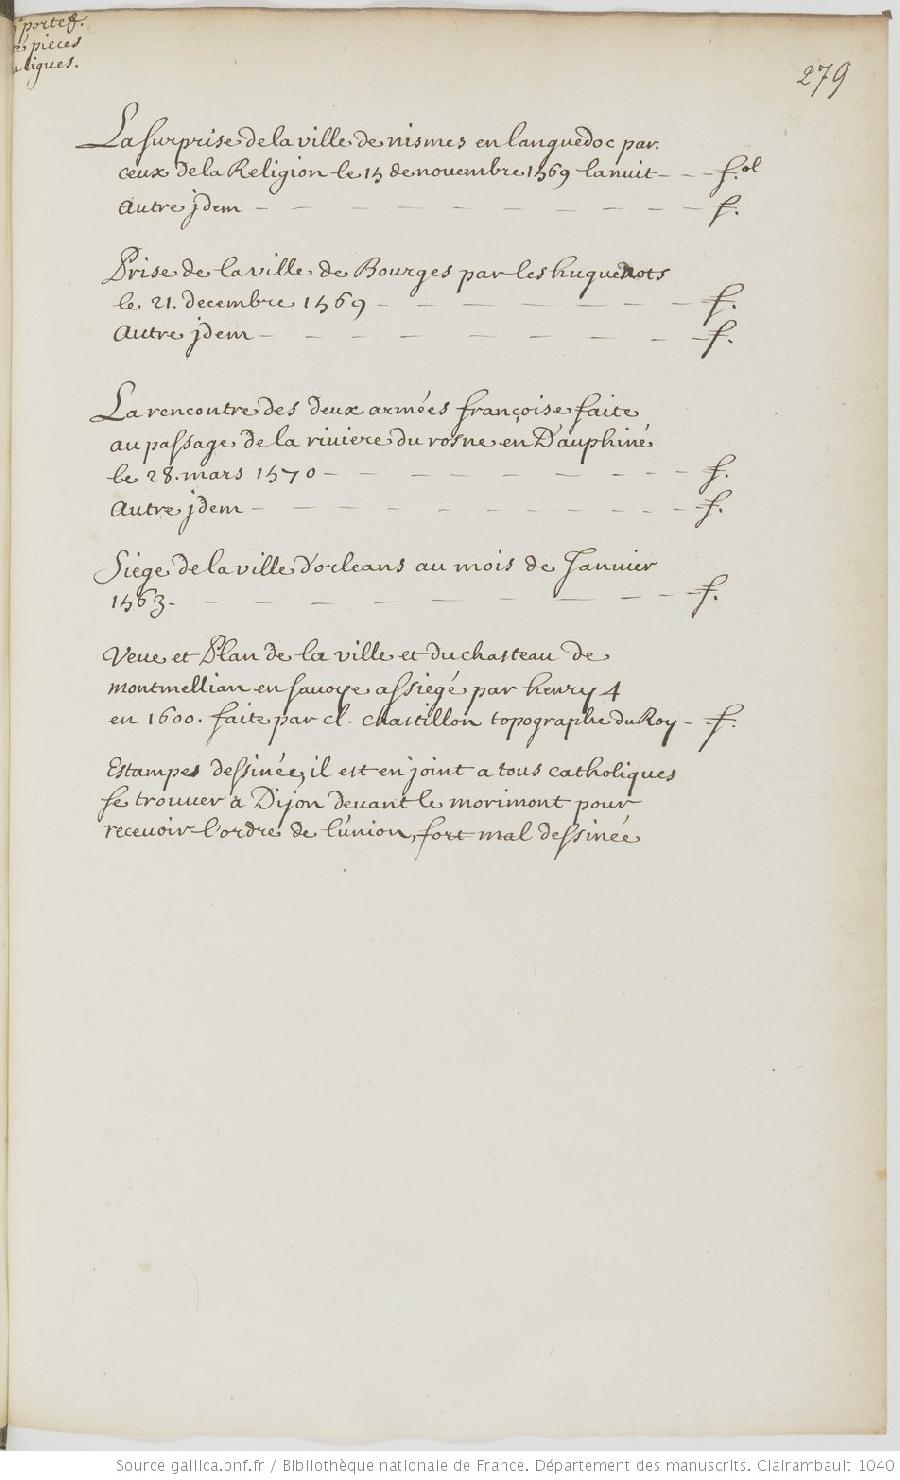 portef.
pieces
279
La surprise de la ville de nismes en languedoc par
ceux de la Religion le 15 de novembre 1569 la nuit - - - f.ol
Autre jdem - - - - - - - - - f.
Prise de la ville de Bourges par les huguenots
le 21. decembre 1569 - - - - - - - f.
Autre jdem - - - - - - - - f.
La rencontre des deux armées françoise faite
au passage de la riviere du rosne en Dauphiné
le 28. mars 1570 - - - - - - - f.
Autre jdem - - - - - - - - - f.
Siege de la ville d'orleans au mois de Januier
1563. - - - - - - - - - f.
Veue et Plan de la ville et du chasteau de
montmellian en sauoye assiegé par henry 4
en 1600. faite par cl. chastillon topographe du Roy - f.
Estampes dessinée, il est enjoint a tous catholiques
se trouuer à Dijon deuant le morimont pour
receuoir l'ordre de l'union, fort mal dessinée
Source gallica.bnf.fr / Bibliothèque nationale de France. Département des manuscrits. Clairambault 1040